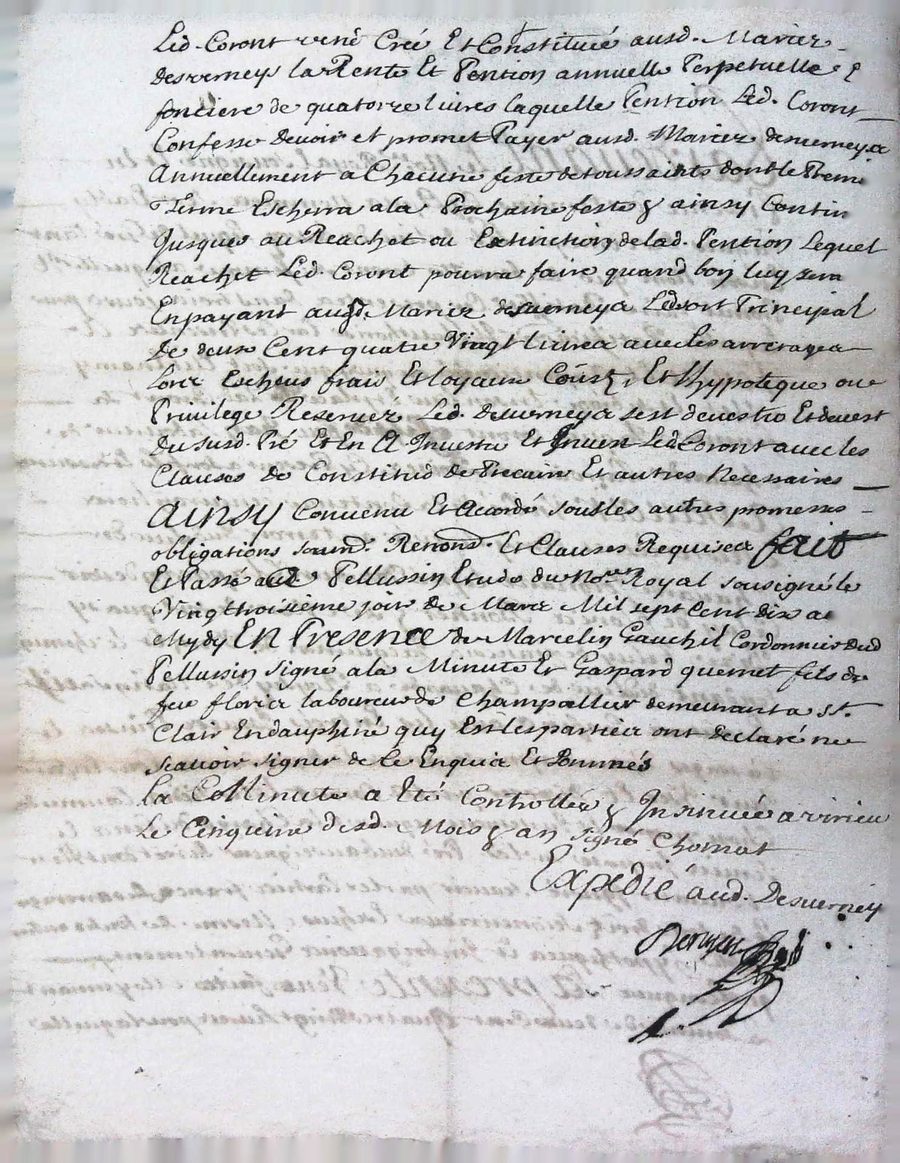 Led. Coront vené Créé Et Constitué ausd. Mariez
desverney la Rente Et Pention annuelle Perpetuelle &
fonciere de quatorze livres laquelle Pention Led. Coront
Confesse devoir et promet Payer ausd. Mariez desverneys
Annuellement a Chacune feste de toussaints dont le Premie
Terme Escherra a la Prochaine feste & ainsy Contin
Jusques au Reachet ou Extinction de lad. Pention Lequel
Reachet Led. Coront pourra faire quand bon luy sera
En payant ausd. Mariez desverneys Led sort Principal
De deux Cent quatre Vingt Livres avec les arrerages
Lors Escheus frais Et loyaux Couts, Et l'hypoteque ou
Privilege Reservéz Led. desverneys s'est devestu Et devest
Du susd. Pré Et En A Investu Et Invest Led Coront avec les
Clauses de Constitut de Precaire Et autres Necessaires
Ainsy Convenu Et Acordé soubs les autres promesses
obligations soumd. Renond. Et Clauses Requises fait
Et Passé aud Pellussin Etude du Nore Royal sousigné le
Vingt troisieme jour de Mars Mil sept Cent dix a
Mydy En Presence de Marcelin Gauchil Cordonnier dud
Pellussin signé a la Minute Et Gaspard quernet fils de
feu floriz laboureur de Champallier demeurant a St.
Clair En dauphiné quy Et les parties ont declaré ne
Scavoir signer de Ce Enquis Et Sommés
La Minute a Eté Controllée & Insinuée a virieu
Le Cinquime desd. Mois & an signé Chomat
Expedié aud. Desverney